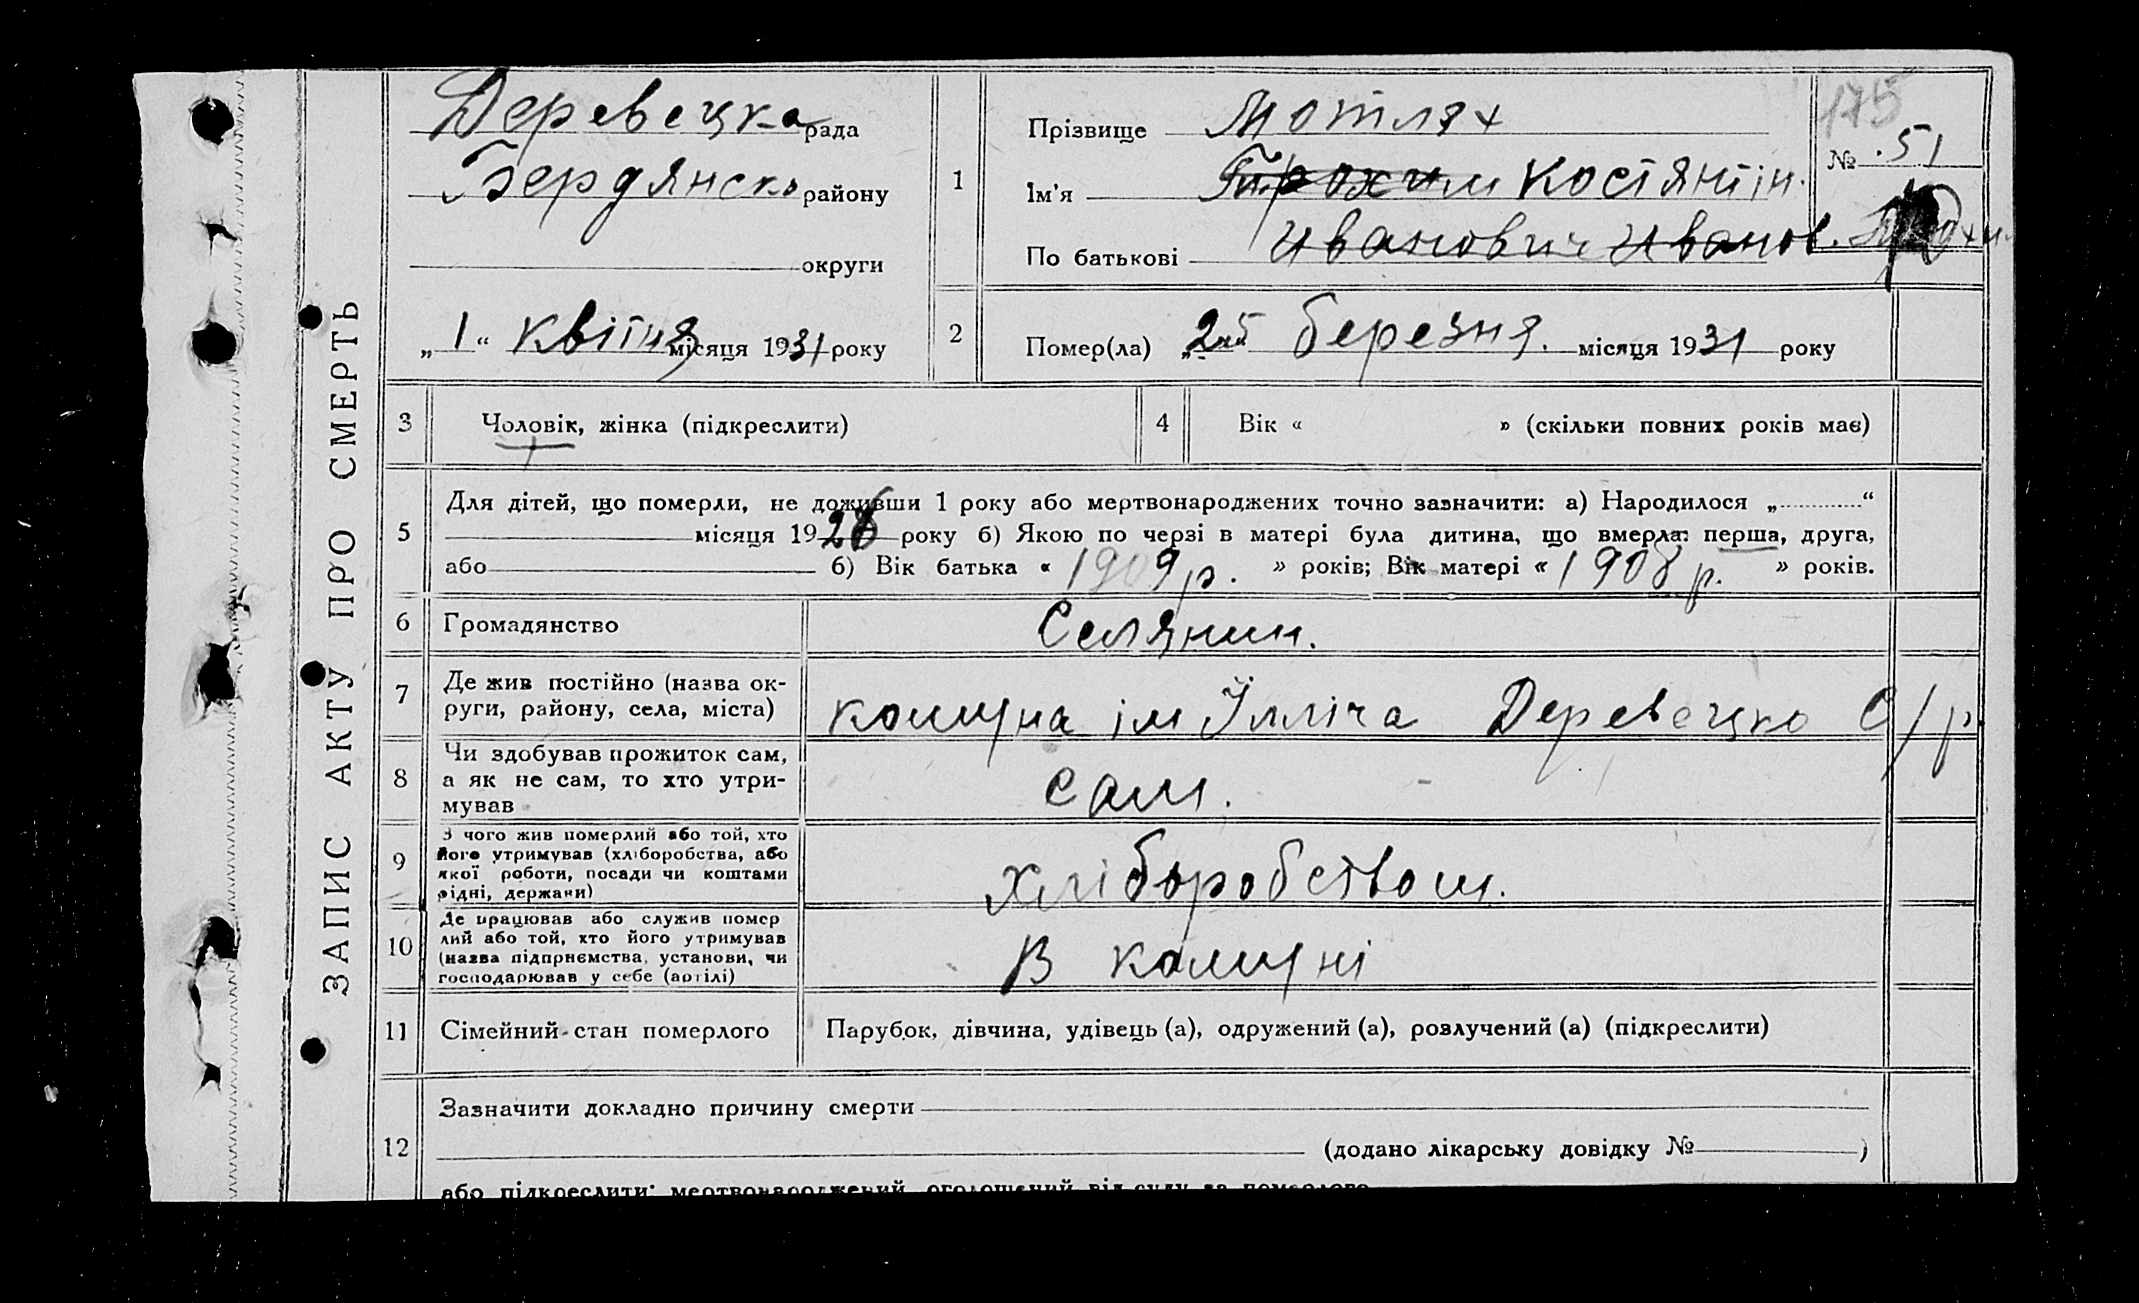 ЗАПИС АКТУ ПРО СМЕРТЬ
Деревецка рада
Бердянсько району
округи
„1“ квітня місяця 1931 року
1
Прізвище Мотлях
Ім'я Трохим Костянтін.
По батькові Иванович Иванов.
175
№ 51
2
Помер(ла) „25 березня. місяця 1931 року
3
Чоловік, жінка (підкреслити)
4
Вік « » (скільки повних років має)
5
Для дітей, що померли, не доживши 1 року або мертвонароджених точно зазначити: а) Народилося „ “
місяця 1928 року б) Якою по черзі в матері була дитина, що вмерла: перша, друга,
або б) Вік батька « 1909 р. » років; Вік матері « 1908 р. » років.
6
Громадянство
Селянин.
7
Де жив постійно (назва ок-
руги, району, села, міста)
комуна ім Ілліча Деревецко С/р
8
Чи здобував прожиток сам,
а як не сам, то хто утри-
мував
Сам.
9
З чого жив померлий або той, хто
його утримував (хліборобства, або
якої роботи, посади чи коштами
рідні, держави)
Хліборобством.
10
Де працював або служив помер
лий або той, хто його утримував
(назва підприємства, установи, чи
господарював у себе (артілі)
В комуні
11
Сімейний стан померлого
Парубок, дівчина, удівець (а), одружений (а), розлучений (а) (підкреслити)
12
Зазначити докладно причину смерти
(додано лікарську довідку № )
або підкреслити: мертвонароджений, оголошений від суду за померлого